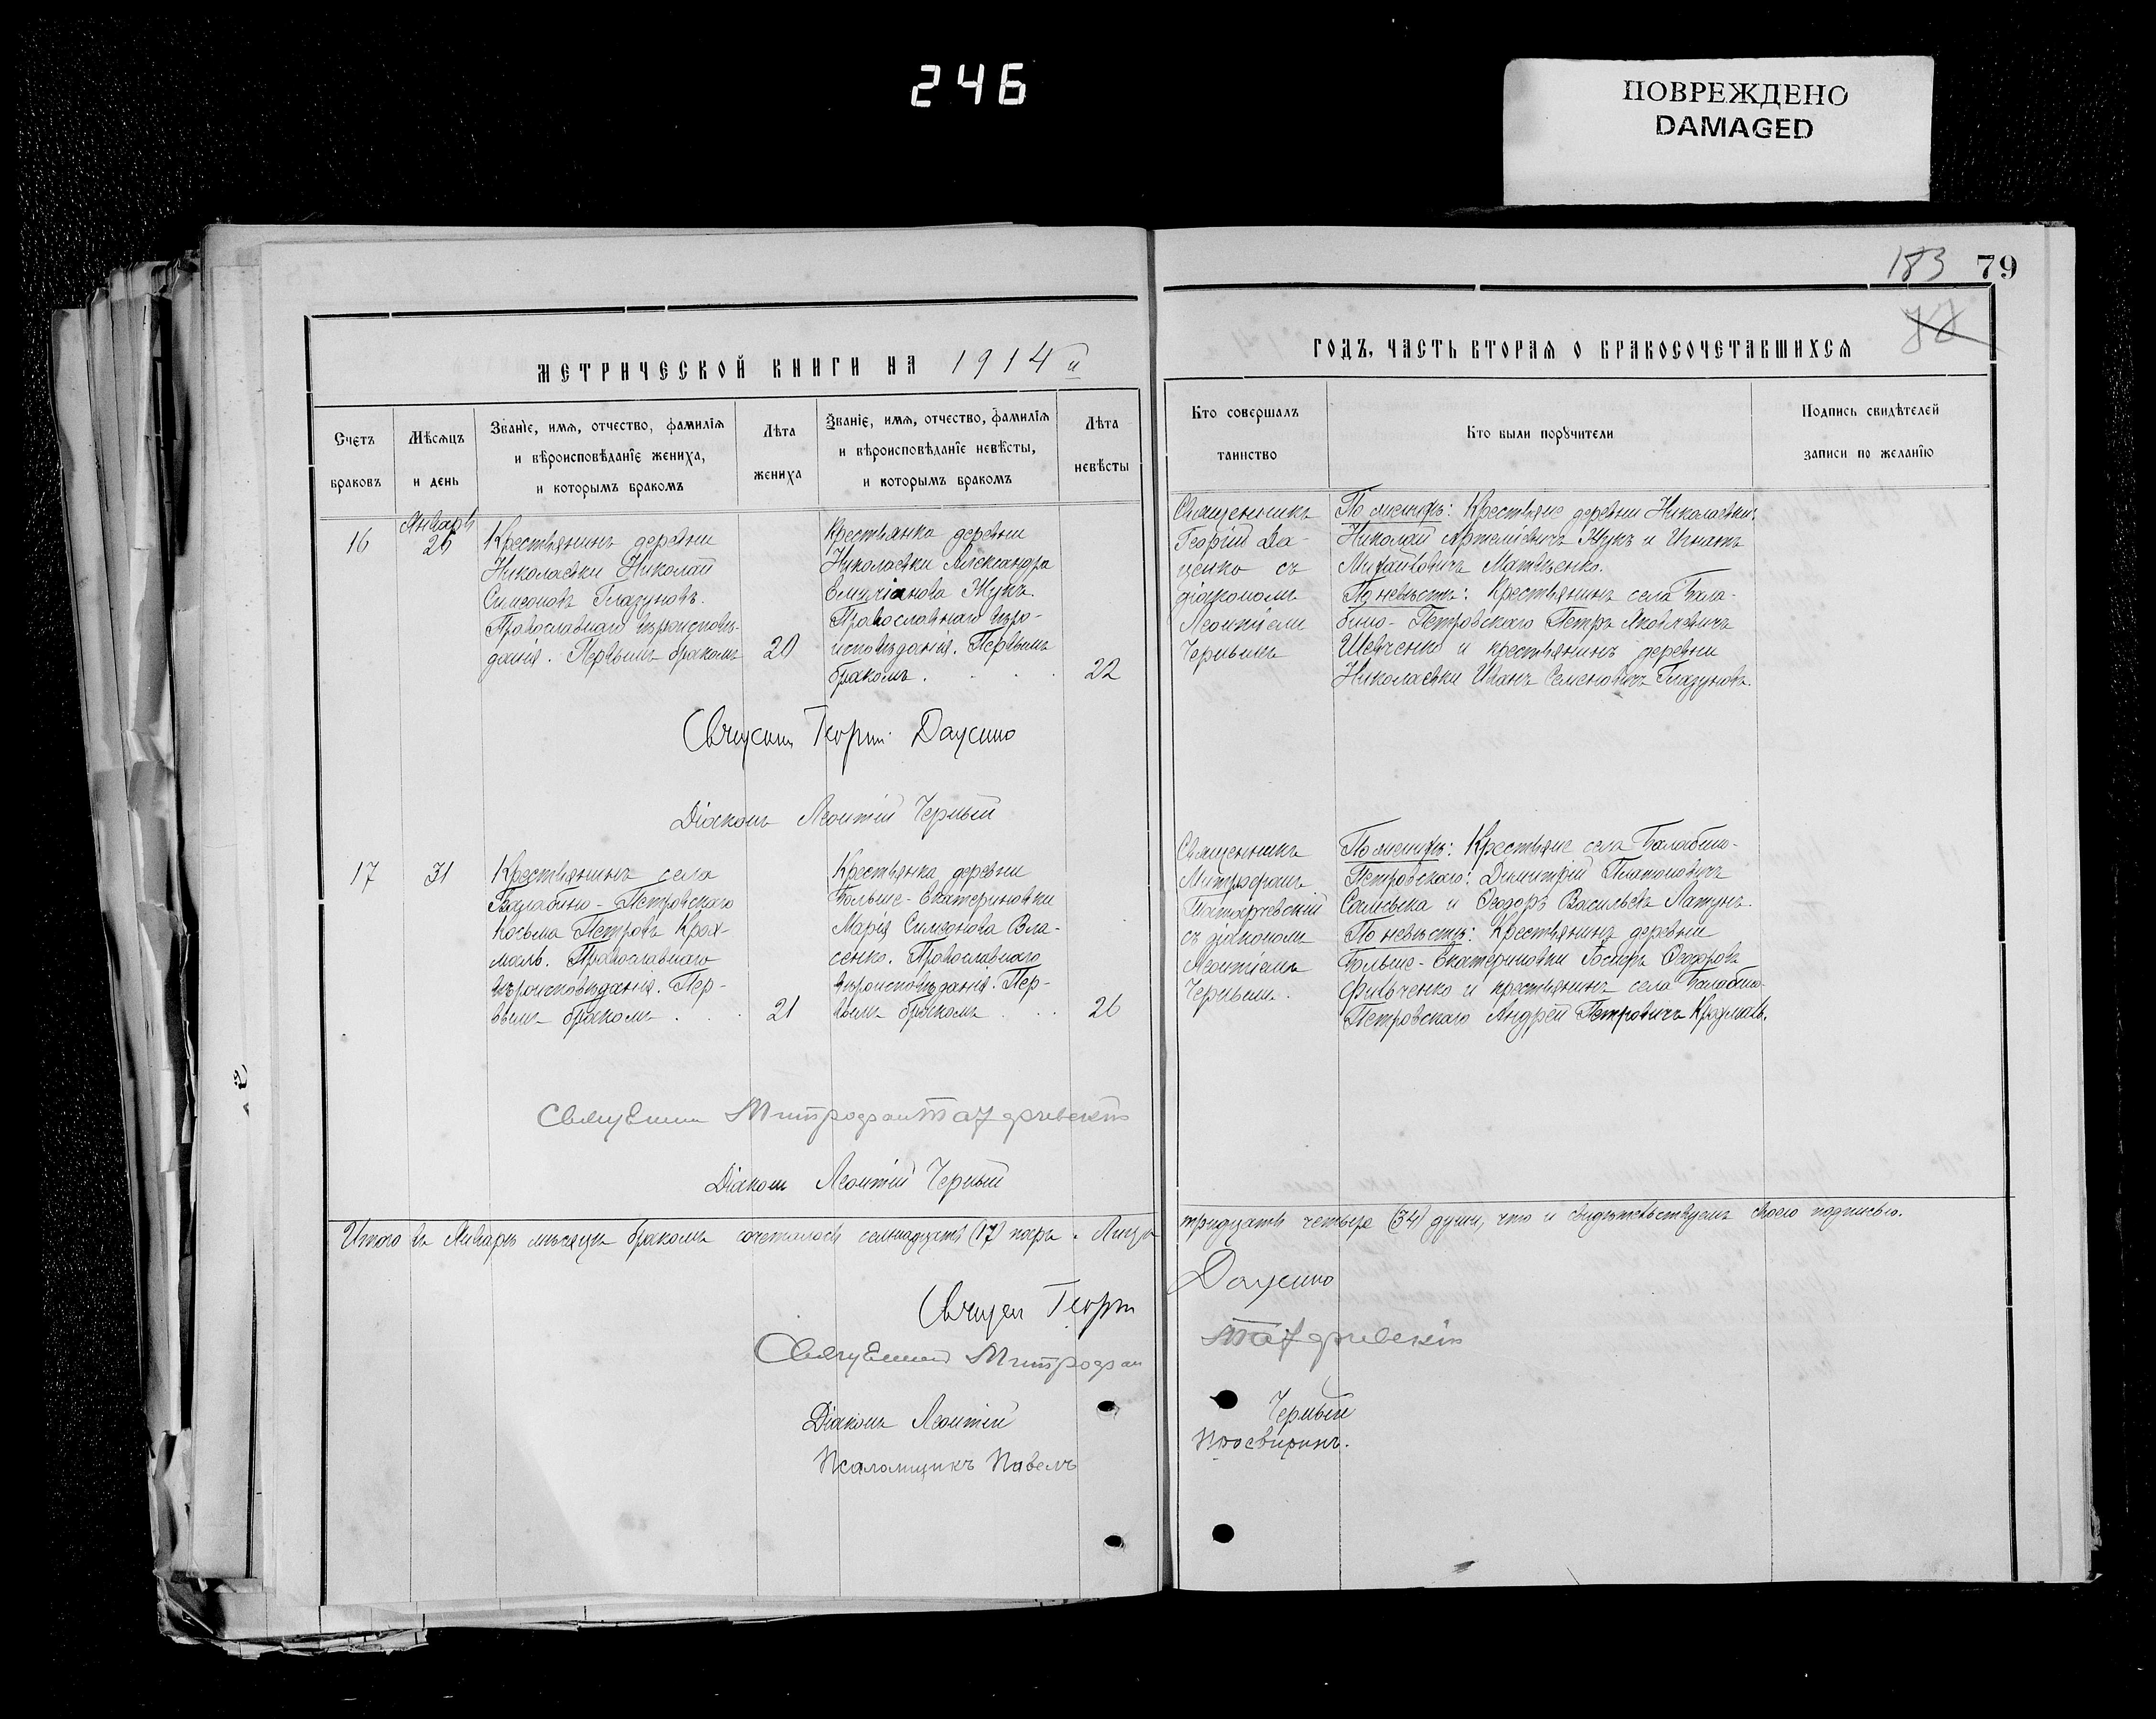 246
ПОВРЕЖДЕНО
DAMAGED
183 79
МЕТРИЧЕСКОЙ КНИГИ НА 1914й
ГОДЪ, ЧАСТЬ ВТОРАЯ О БРАКОСОЧЕТАВШИХСЯ
Счетъ
браковъ
Мѣсяцъ
и день
Званіе, имя, отчество, фамилія
и вѣроисповѣданіе жениха,
и которымъ бракомъ
Лѣта
жениха
Званіе, имя, отчество, фамилія
и вѣроисповѣданіе невѣсты,
и которымъ бракомъ
Лѣта
невѣсты
Кто совершалъ
таинство
Кто были поручители
Подпись свидѣтелей
записи по желанію
16
Январь
26
Крестьянинъ деревни
Николаевки Николай
Симеоновъ Глазуновъ.
Православнаго вѣроисповѣ-
данія. Первымъ бракомъ
20
Крестьянка деревни
Николаевки Александра
Емиліанова Жукъ.
Православнаго вѣро-
исповѣданія. Первымъ
бракомъ.
22
Священникъ
Георгій Да-
ценко съ
діакономъ
Леонтіемъ
Чернымъ
По женихѣ: Крестьяне деревни Николаевки:
Николай Артеміевичъ Жукъ и Игнатъ
Михайловичъ Матвѣенко.
По невѣстѣ: Крестьянинъ села Бала-
бино-Петровскаго Петръ Яковлевичъ
Шевченко и крестьянинъ деревни
Николаевки Иванъ Семеновичъ Глазуновъ.
Священ Георгій Даценко
Діаконъ Леонтій Черный
17
31
Крестьянинъ села
Балабино-Петровскаго
Косьма Петровъ Крах-
маль. Православнаго
вѣроисповѣданія. Пер-
вымъ бракомъ . . .
21
Крестьянка деревни
Больше-Екатериновки
Марія Симеонова Вла-
сенко. Православнаго
вѣроисповѣданія. Пер-
вымъ бракомъ . . .
26
Священникъ
Митрофанъ
съ діакономъ
Леонтіемъ
Чернымъ.
По женихѣ: Крестьяне села Балабино-
Петровскаго: Димитрій Платоновичъ
и Ѳеодоръ Васильевъ Латунъ.
По невѣстѣ: Крестьянинъ деревни
Больше-Екатериновки Іосифъ Ѳедоровъ
Фильченко и крестьянинъ села Балабино-
Петровскаго Андрей Петровичъ Крахмаль.
Священник Митрофан
Діаконъ Леонтій Черный
Итого въ Январѣ мѣсяцѣ бракомъ сочеталось семнадцать (17) паръ. Лицъ тридцать четыре (34) души, что и свидѣтельствуемъ своею подписью.
Священ Георгій Даценко
Священник Митрофан
Діаконъ Леонтій Черный
Псаломщикъ Павелъ Просвиринъ.